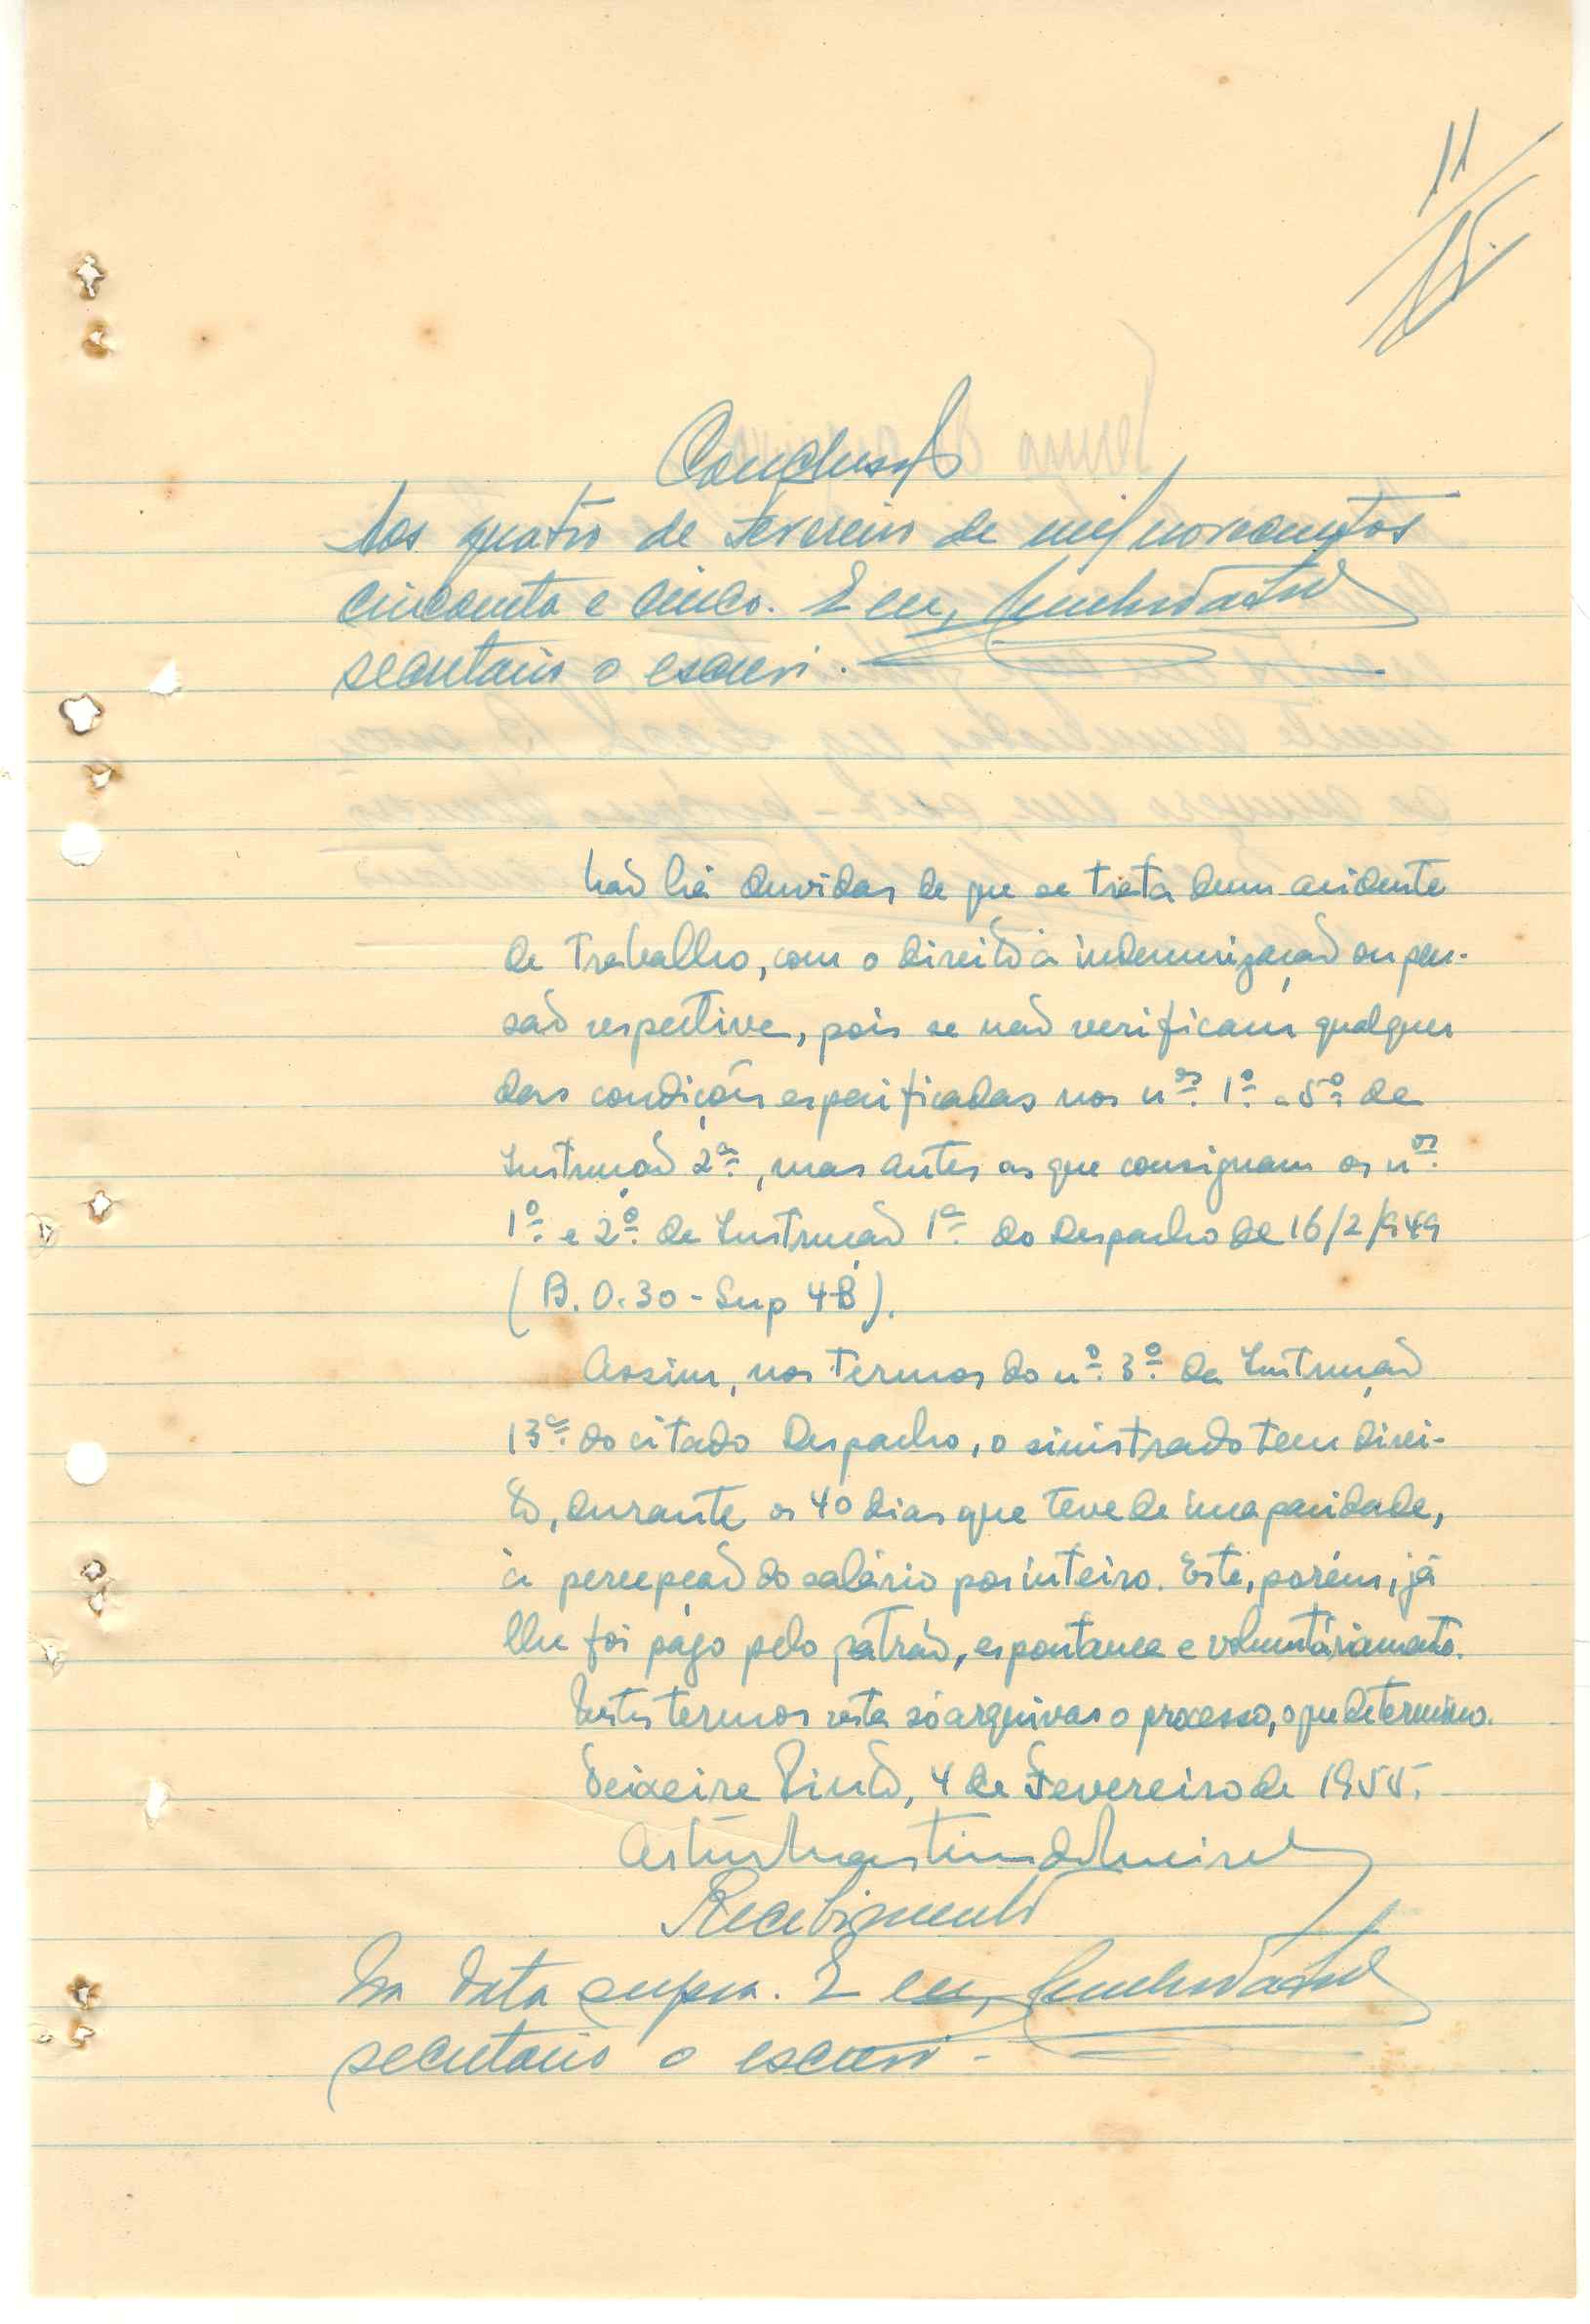 11
Conclusão
Aos quatro de Fevereiro de mil novecentos
cincoenta e cinco. E eu,
secretario o escrevi.
Não há duvidas de que se trata dum acidente
de Trabalho, com o direito à indemnização ou pen-
são respectiva, pois se não verificam qualquer
das condições especificadas nos nos 1º a 5º da
Instrução 2ª, mas antes as que consignam os nos
1º e 2º da Instrução 1ª do Despacho de 16/2/949
(B.O. 30 - Sup 4-B).
Assim, nos Termos do nº 3º da Instrução
13ª do citado Despacho, o sinistrado tem direi-
to, durante os 40 dias que teve de incapacidade,
à percepção do salário por inteiro. Este, porém, já
lhe foi págo pelo patrão, espontanea e voluntáriamente.
Nestes termos resta só arquivar o processo, o que determino.
Teixeira Pinto, 4 de Fevereiro de 1955.
Recebimento
Na data supra. E eu,
secretario o escrevi -